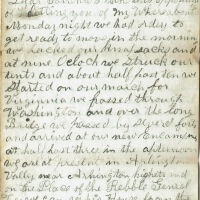 telling you of
Monday night we had orders to
get ready to move in the morning
we packed our knap sacks and
at nine Oclock we Struck our
tents and about half past ten we
Started on our march for
Virginnea we passed through
Washington and over the Long
Bridge we passed by
and arrived at our new Encampment
at half past three in the afternoon
we are at present in Arlington
Valley near Arlington hights and
on the Place of the Rebble General